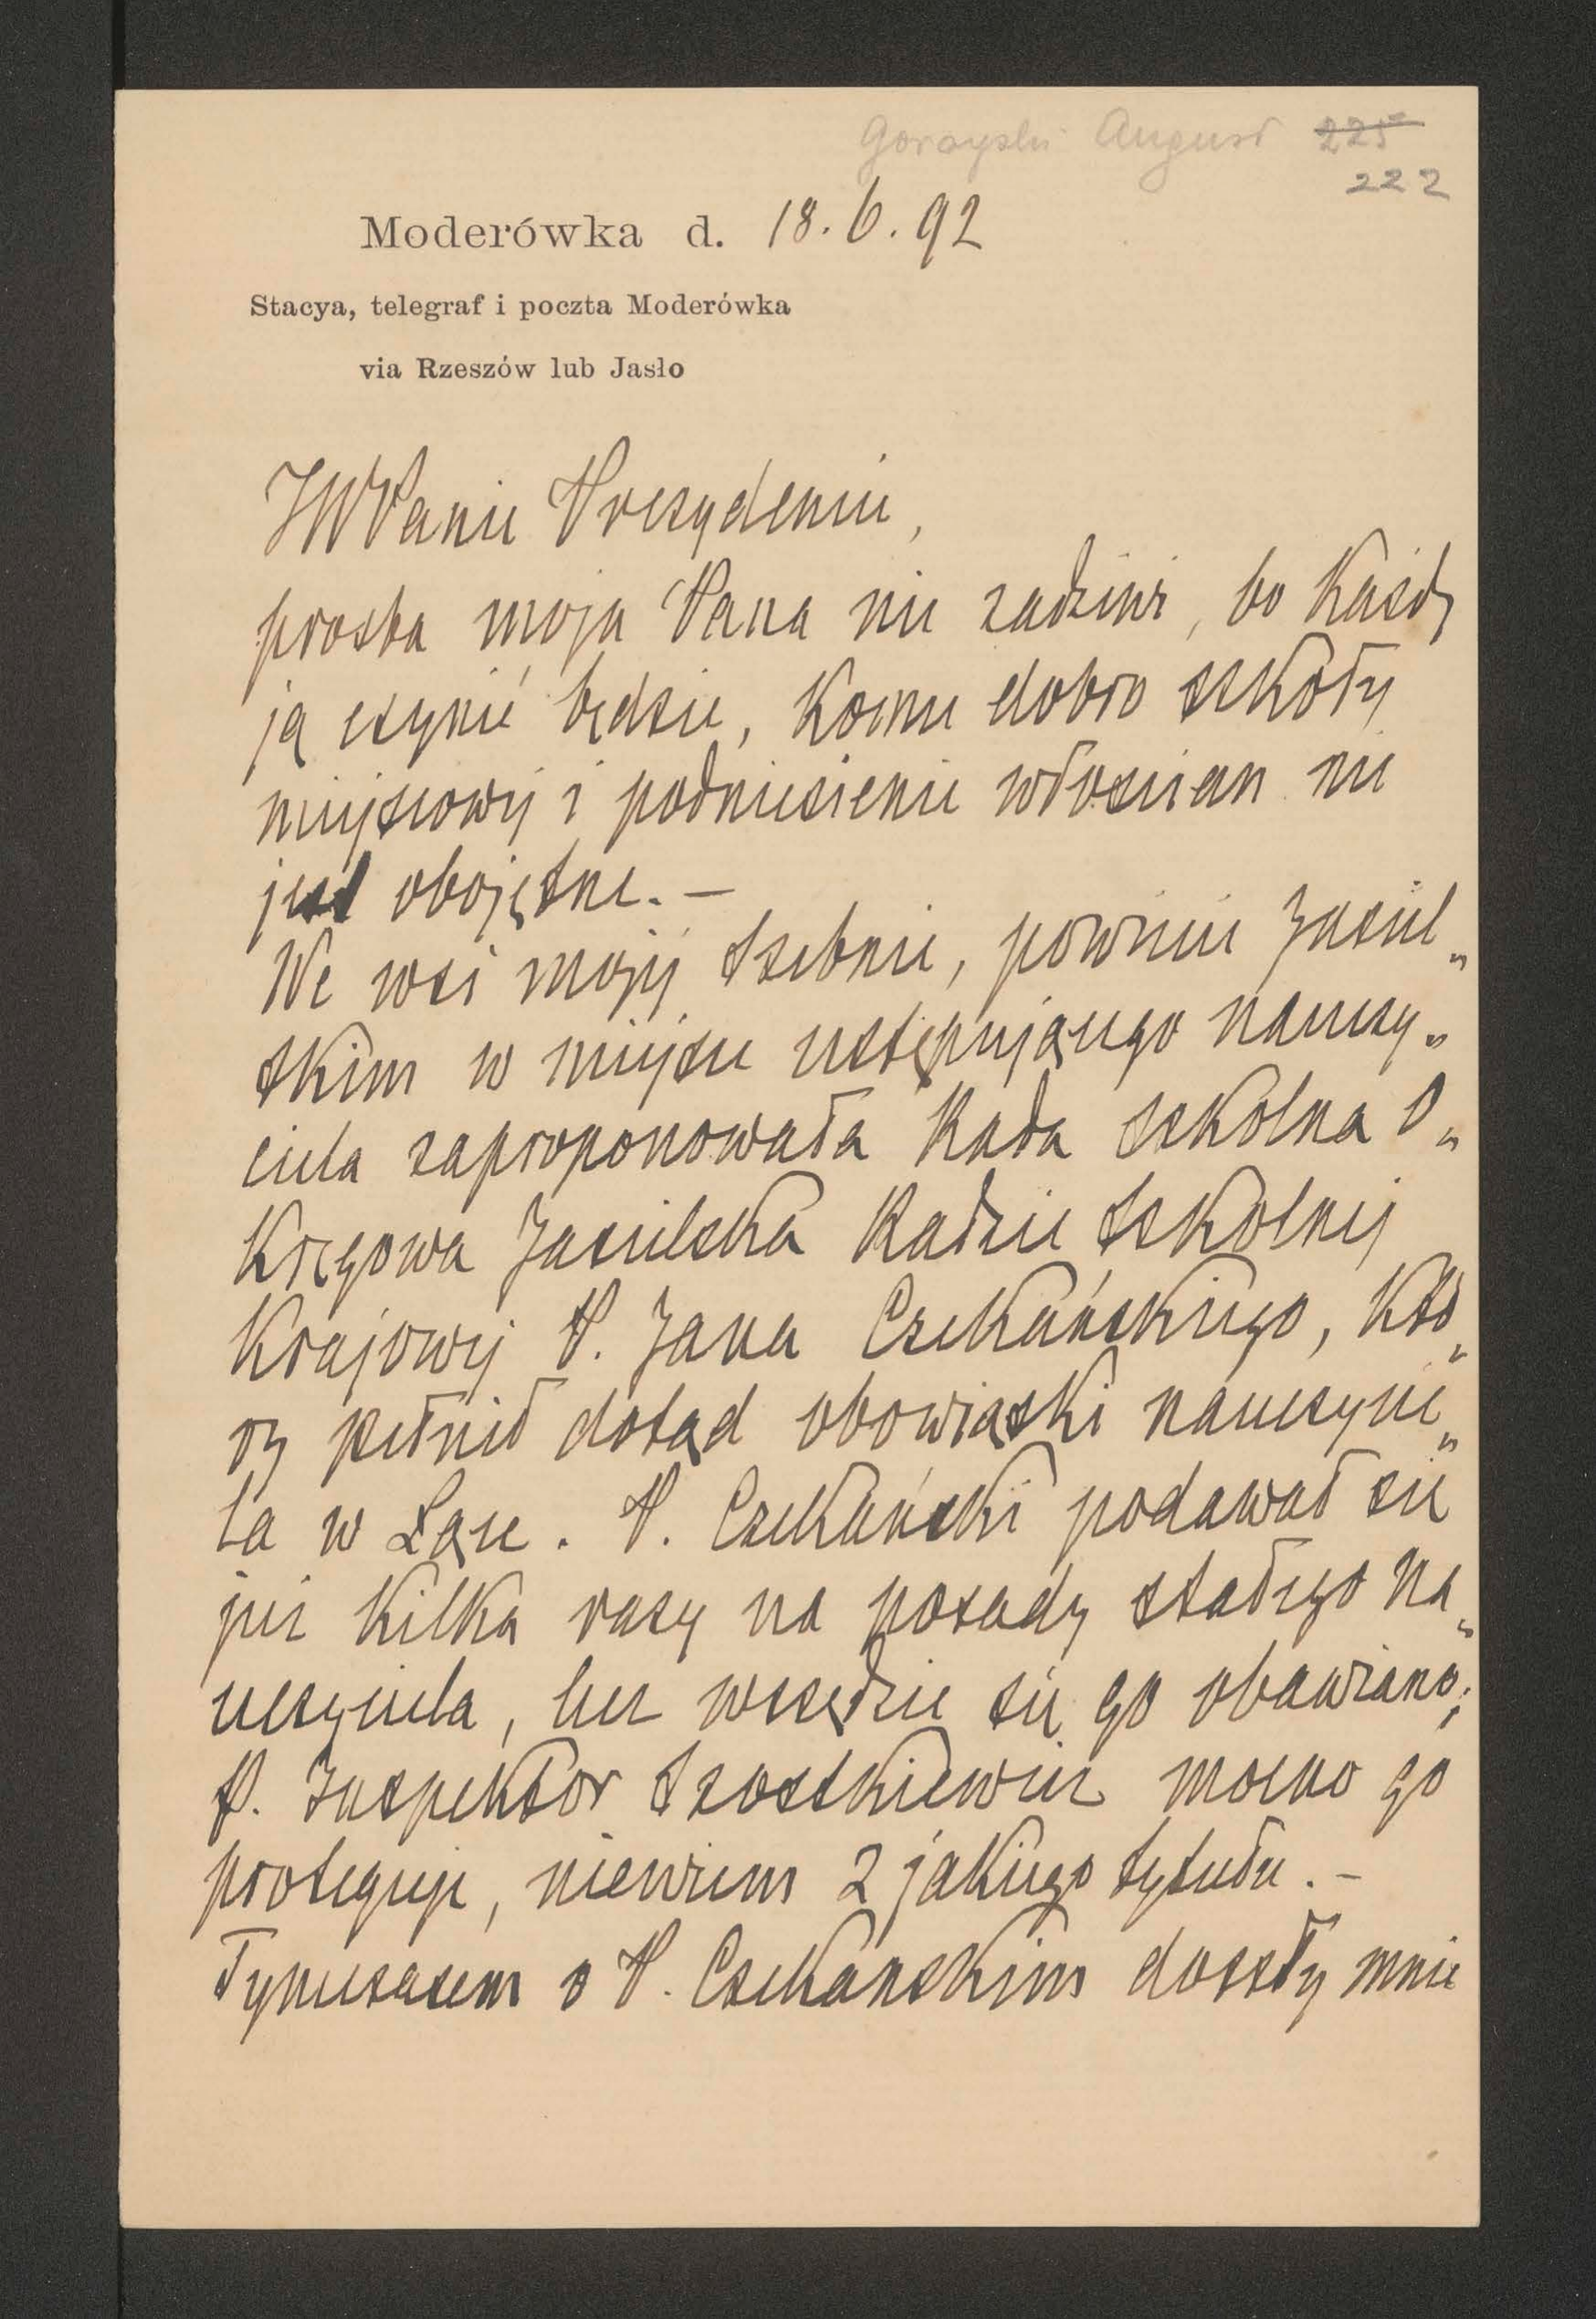 Gorayski August 225
222
Moderówka d. 18. 6. 92
Stacya, telegraf i poczta Moderówka
via Rzeszów lub Jasło
JWPanie Prezydencie,
prosba moja Pana nie zadziwi, bo każdy
ją czynić będzie, komu dobro szkoły
miejscowej i podniesienie włoscian nie
jest obojętne. —
We wsi mojej Szebnie, powiecie Jasiel„
skim w miejsce ustępującego nauczy„
ciela zaproponowała Rada szkolna O„
kręgowa Jasielska Radzie Szkolnej
Krajowej P. Jana Czekańskiego, któ„
ry pełnił dotąd obowiązki nauczycie„
la w Łące. P. Czekański podawał się
już kilka razy na posady stałego na„
uczyciela, lecz wszędzie się go obawiano;
P. Inspektor Szostkiewicz mocno go
proteguje, niewiem z jakiego tytułu. –
Tymczasem o P. Czekanskim doszły mnie